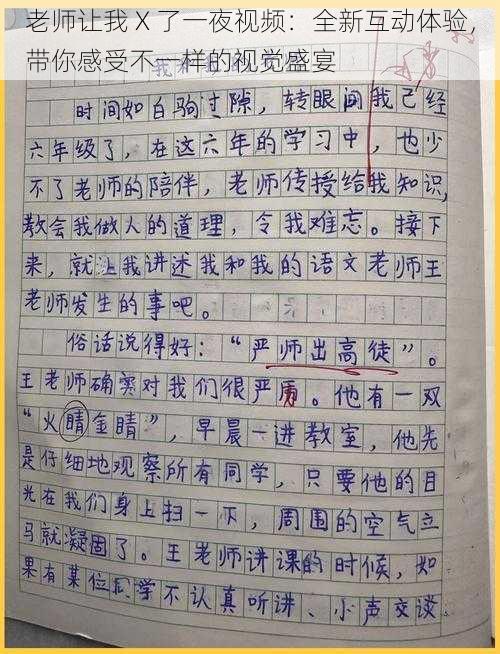 老师让我 X 了一夜视频：全新互动体验，
带你感受不一样的视觉盛宴
时间如白驹过隙，转眼间我已经
六年级了，在这六年的学习中，也少
不了老师的陪伴，老师传授给我知识，
教会我做人的道理，令我难忘。接下
来，就让我讲述我和我的语文老师王
老师发生的事吧。
俗话说得好：“严师出高徒”。
王老师确实对我们很严厉。他有一双
“火睛金睛”，早晨一进教室，他先
是仔细地观察所有同学，只要他的目
光在我们身上扫一下，周围的空气立
马就凝固了。王老师讲课的时候，如
果有某位同学不认真听讲、小声交谈